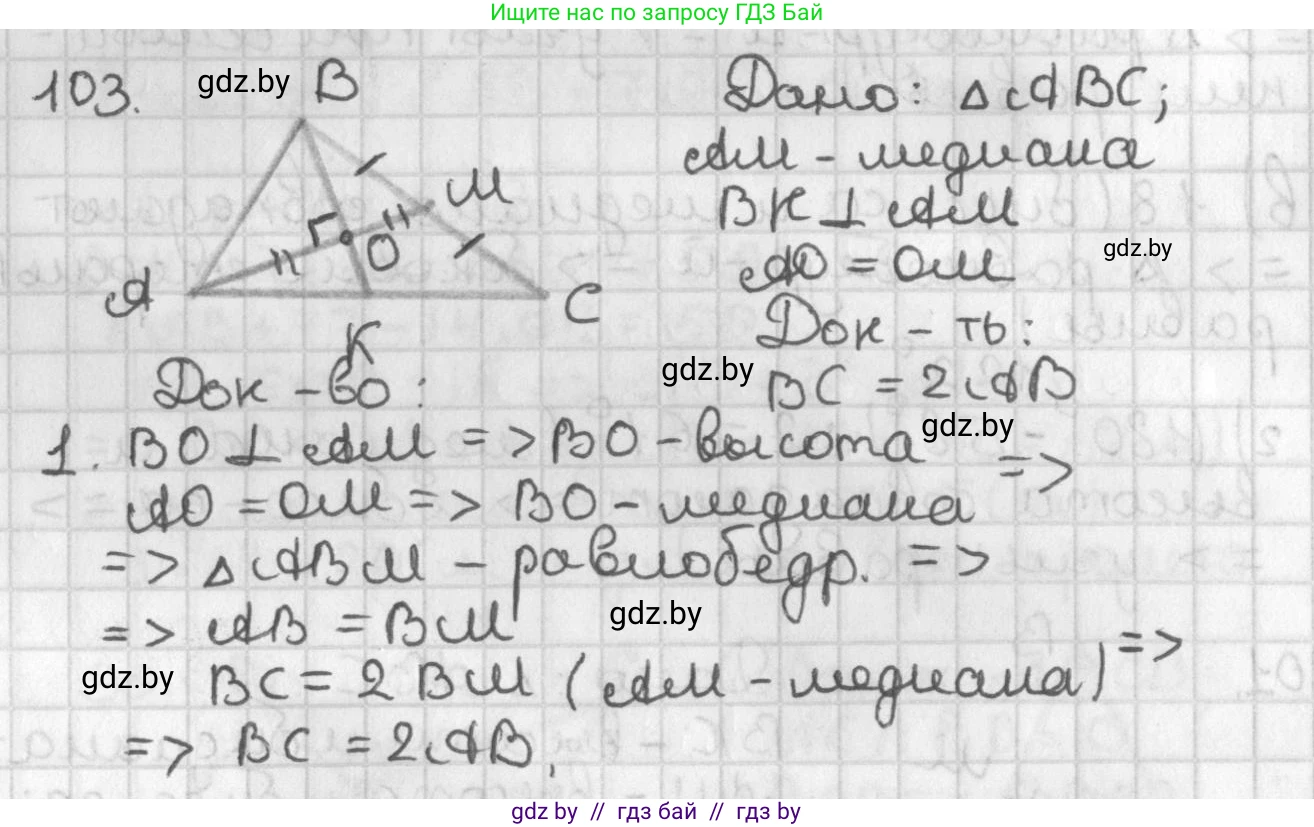 Ищите нас по запросу ГДЗ Бай
103.
gdz.by
B
Дано: △ABC;
AM - медиана
M
BK ⊥ AM
O
AO = OM
gdz.by
A
C
Док - ть:
K
gdz.by
BC = 2AB
Док - во:
gdz.by
1. BO ⊥ AM => BO - высота
AO = OM => BO - медиана =>
=> △ABM - равнобедр. =>
=> AB = BM
gdz.by
gdz.by
BC = 2 BM (AM - медиана) =>
=> BC = 2AB.
gdz.by // гдз бай // гдз by